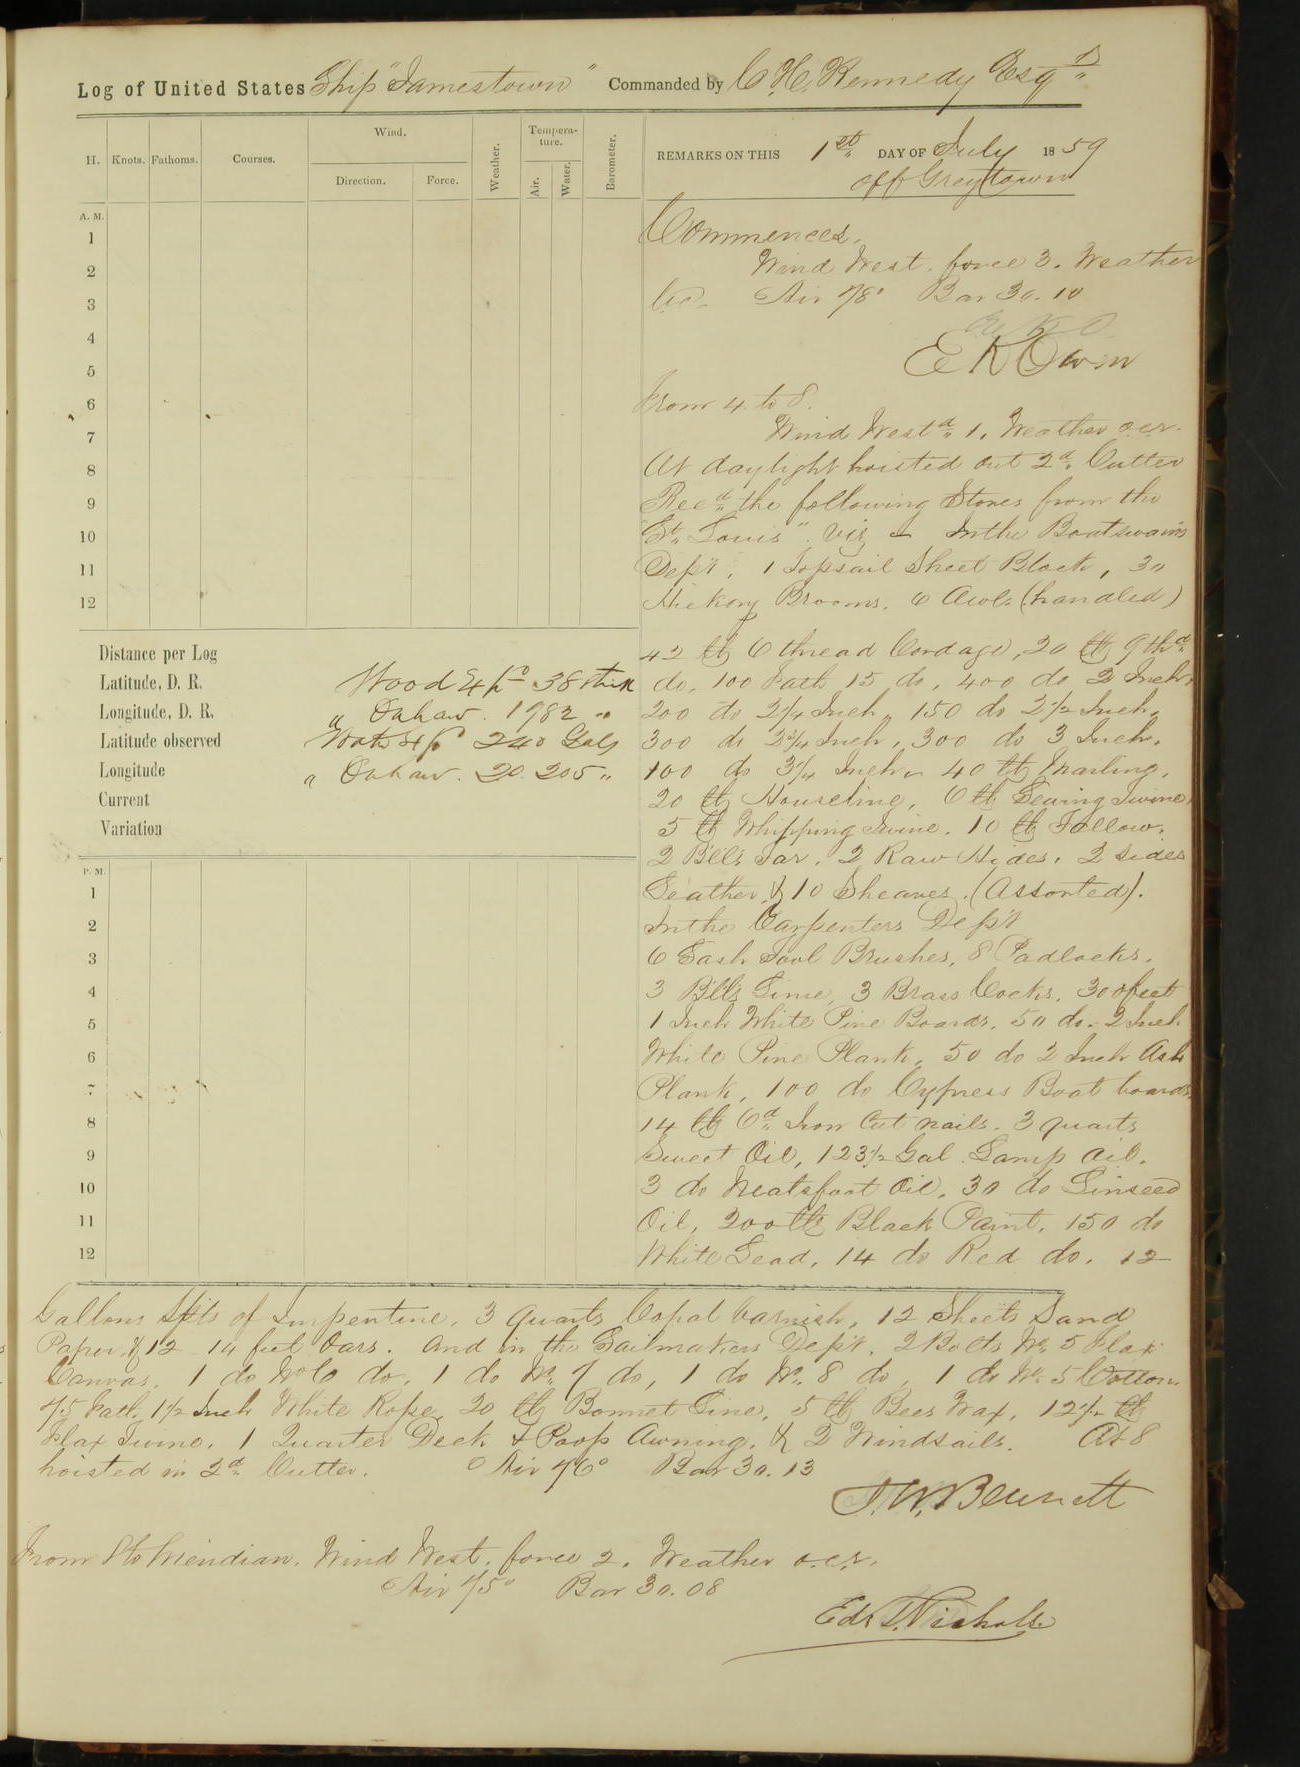 Log of United States Ship "Jamestown" Commanded by C. H. Kennedy Esqr
H. Knots. Fathoms. Courses. Wind. Direction. Force. Weather. Tempera-ture. Air. Water. Barometer.
REMARKS ON THIS 1st DAY OF July 1859
off Greytown
A. M.
1
2
3
4
5
6
7
8
9
10
11
12
Commences.
Wind West. force 3. Weather
Air 78° Bar 30.10
E K Owen
From 4 to 8.
Wind Westd 1. Weather o.c.r.
At daylight hoisted out 2d Cutter
Recd the following Stores from the
"St. Louis". viz - In the Boatswains
Dept. 1 Topsail Sheet Block, 30
Hickory Brooms. 6 Awls (handled)
42 lb 6 thread Cordage, 20 lb 9 thd
do, 100 Fath 15 do, 400 do 2 Inch,
200 do 2 1/4 Inch, 150 do 2 1/2 Inch,
300 do 2 3/4 Inch, 300 do 3 Inch,
100 do 3 1/4 Inch, 40 lb Marling,
20 lb Houseline, 6 lb Sewing Twine,
5 lb Whipping Twine. 10 lb Tallow.
2 Bbls Tar. 2 Raw Hides. 2 sides
Leather, & 10 Sheaves. (Assorted).
In the Carpenters Dept
6 Sash Tool Brushes, 8 Padlocks.
3 Bbls Lime, 3 Brass Cocks. 300 feet
1 Inch White Pine Boards. 50 do. 2 Inch
White Pine Plank, 50 do 2 Inch Ash
Plank, 100 do Cypress Boat boards,
14 lb 6d Iron Cut nails. 3 quarts
Sweet Oil, 123 1/2 Gal Lamp Oil.
3 do Neatsfoot Oil. 30 do Linseed
Oil, 200 lb Black Paint. 150 do
White Lead, 14 do Red do. 12
Distance per Log
Latitude, D. R.
Longitude, D. R.
Latitude observed
Longitude
Current
Variation
Wood 38
" On hand. 1982 "
240 Gals
" On hand. 20.205 "
P. M.
1
2
3
4
5
6
7
8
9
10
11
12
Gallons Spts of Turpentine, 3 quarts Copal Varnish, 12 Sheets Sand
Paper & 12 14 feet Oars. And in the Sailmakers Dept. 2 Bolts No. 5 Flax
Canvas. 1 do No 6 do, 1 do No. 7 do, 1 do No. 8 do, 1 do No. 5 Cotton
75 Fath. 1 1/2 Inch White Rope. 20 lb Bonnet Line, 5 lb Bees Wax, 12 1/2 lb
Flax Twine. 1 Quarter Deck & Poop Awning. & 2 Windsails. At 8
hoisted in 2d Cutter. Air 76° Bar 30.13
J. W. Bennett
From 8 to Meridian. Wind West. force 2. Weather o.c.r.
Air 75° Bar 30.08
Edw T. Nichols